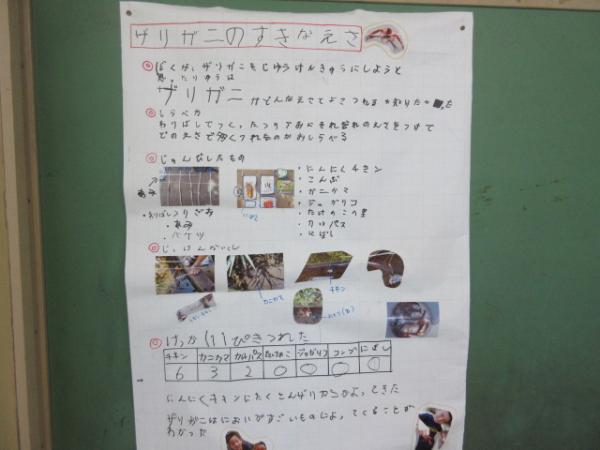 ザリガニのすきなえさ
ぼくが、ザリガニをじゆうけんきゅうにしようと
思ったりゆうは
ザリガニ がどんなえさでよくつれるか知りたかった
しらべかた
わりばしでつくったつりざおにそれぞれのえさをつけて
どのえさで多くつれるのかおしらべる
じゅんびしたもの
あみ
・わりばしつりざお
・あみ
・バケツ
・にんにくチキン
・こんぶ
・カニカマ
・ジャガリコ
・たけのこの里
・カルパス
・にぼし
じっけんかいし
カニカマ
チキン
けっか 11ぴきつれました
チキン カニカマ カルパス たけのこ ジャガリコ コンブ にぼし
6 3 2 0 0 0 0
にんにくチキンにたくさんザリガニがよってきた
ザリガニはにおいがすごいものによってくることが
わかった